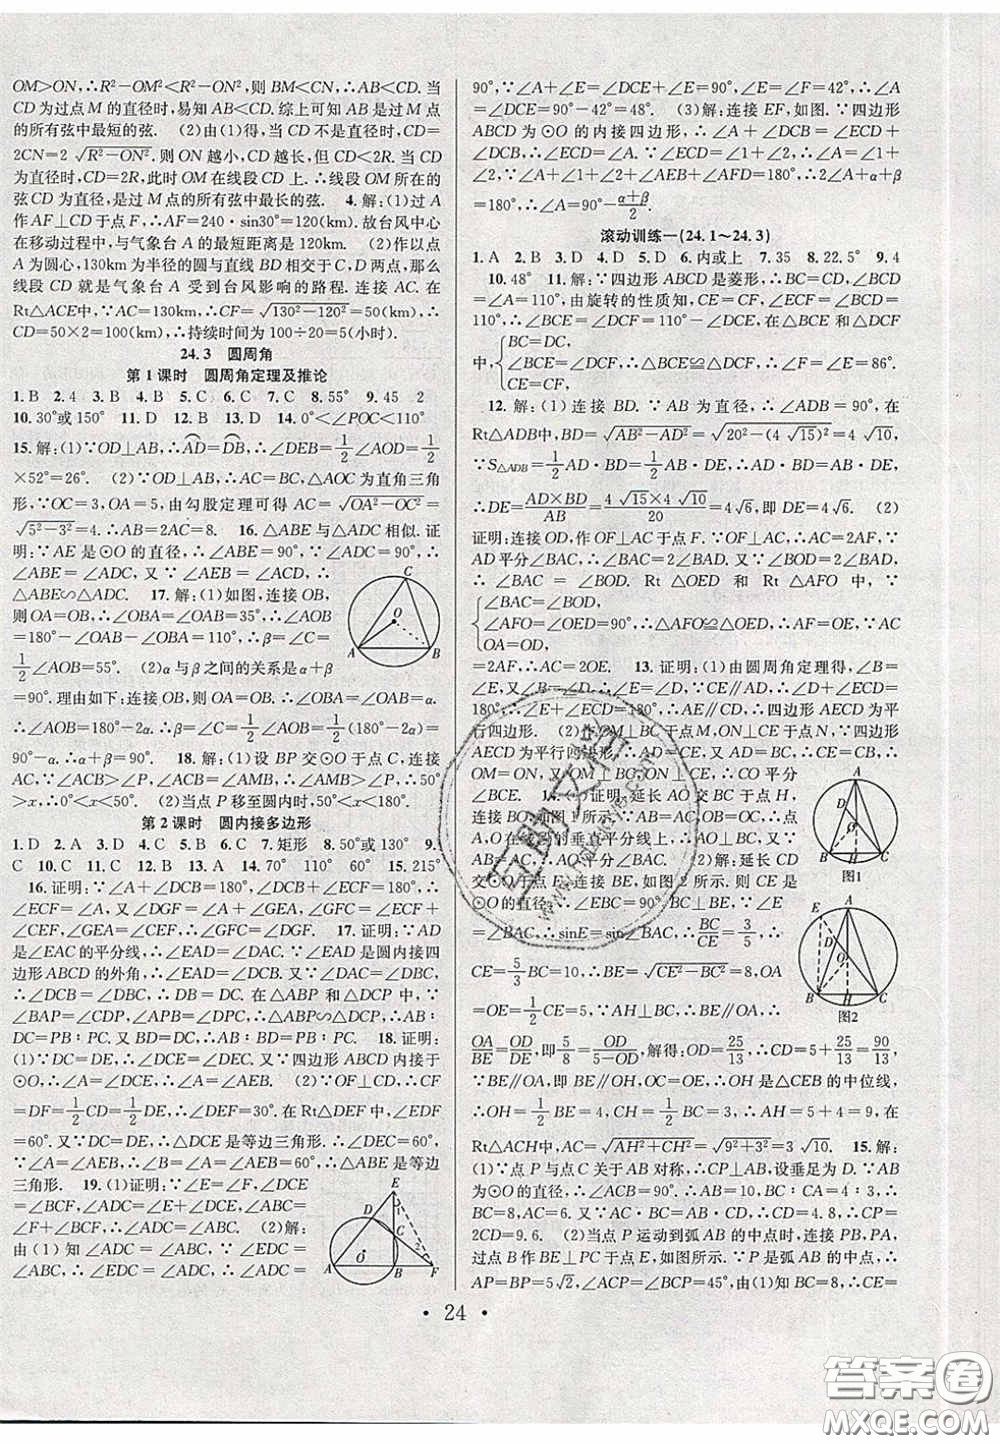 OM>ON,∴R²-OM²<R²-ON²,则 BM<CN,∴AB<CD. 当
CD 为过点 M 的直径时,易知 AB<CD. 综上可知 AB 是过 M 点
的所有弦中最短的弦. (2)由(1)得,当 CD 不是直径时,CD=
2CN=2√(R²-ON²). 则 ON 越小,CD 越长,但 CD<2R. 当 CD
为直径时,CD=2R,此时 OM 在线段 CD 上. ∴线段 OM 所在的
弦 CD 为直径,是过 M 点的所有弦中最长的弦. 4. 解:(1)过 A
作 AF⊥CD 于点 F,∴AF=240·sin30°=120(km). 故台风中心
在移动过程中,与气象台 A 的最短距离是 120km. (2)作以点
A 为圆心,130km 为半径的圆与直线 BD 相交于点 C,D,那么
线段 CD 就是气象台 A 受到台风影响的路程. 连接 AC. 在
Rt△ACE中,∵AC=130km,∴CF=√(130²-120²)=50(km),∴
CD=50×2=100(km),∴持续时间为 100÷20=5(小时).
24.3 圆周角
第 1 课时 圆周角定理及推论
1. B 2. 4 3. B 4. B 5. C 6. C 7. C 8. 55° 9. 45 2
10. 30°或 150° 11. D 12. D 13. D 14. 0°<∠POC<110°
15. 解:(1)∵OD⊥AB,∴AD=DB,∴∠DEB=1/2∠AOD=1/2
×52°=26°. (2)∵OD⊥AB,∴AC=BC,△AOC 为直角三角
形,∵OC=3,OA=5,由勾股定理可得 AC=√(OA²-OC²)=
√(5²-3²)=4. ∴AB=2AC=8. 16. △ABE 与△ADC 相似. 证
明:∵AE 是⊙O 的直径,∴∠ABE=90°,∵∠ADC=90°,∴
∠ABE=∠ADC,又∵∠AEB=∠ACD,∴
△ABE∽△ADC. 17. 解:(1)如图,连接 OB,
则 OA=OB,∴∠OBA=∠OAB=35°,∴∠AOB
=180°-∠OAB-∠OBA=110°,∴β=∠C=
1/2∠AOB=55°. (2)α与β之间的关系是α+β
=90°. 理由如下:连接 OB,则 OA=OB,∴∠OBA=∠OAB=α.
∴∠AOB=180°-2α. ∴β=∠C=1/2∠AOB=1/2(180°-2α)=
90°-α. ∴α+β=90°. 18. 解:(1)设 BP 交⊙O 于点 C,连接
AC,∵∠ACB>∠P,∵∠ACB=∠AMB,∴∠AMB>∠P,∴50°
>x,∴0°<x<50°. (2)当点 P 移至圆内时,50°<x<180°.
第 2 课时 圆内接多边形
1. D 2. A 3. D 4. B 5. D 6. C 7. 矩形 8. 50°或130° 9.
C 10. C 11. C 12. A 13. A 14. 70° 110° 60° 15. 215°
16. 证明:∵∠A+∠DCB=180°,∠DCB+∠ECF=180°,∴∠A
=∠ECF,又∵∠DGF=∠A+∠GEA,∠GFC=∠ECF+
∠CEF,∠GEA=∠CEF,∴∠GFC=∠DGF. 17. 证明:∵AD
是∠EAC 的平分线,∴∠EAD=∠DAC. ∵∠EAD 是圆内接四
边形 ABCD 的外角,∴∠EAD=∠DCB. ∵∠DAC=∠DBC,
∴∠DCB=∠DBC,∴BD=DC,在△ABP 和△DCP 中,∵
∠BAP=∠CDP,∠APB=∠DPC,∴△ABP∽△DCP,∴AB:
DC=PB:PC. 又 BD=DC,∴AB:BD=PB:PC. 18. 证明:
(1)∵DC=DE,∴∠DCE=∠DEC. 又∵四边形 ABCD 内接于
⊙O,∴∠A=∠DCE,∴∠A=∠AEB. (2)∵OF⊥CD,∴CF
=DF=1/2CD=1/2DE,∴∠DEF=30°. 在 Rt△DEF 中,∠EDF
=60°. 又∵DC=DE,∴△DCE 是等边三角形. ∴∠DEC=60°.
∵∠A=∠AEB,∴∠A=∠AEB=60°. ∴△ABE 是等边三
角形. 19. (1)证明:∵∠E=∠F,
∠DCE=∠BCF,∠ADC=∠E+∠DCE,∠ABC=
∠F+∠BCF,∴∠ADC=∠ABC. (2)解:
由(1)知∠ADC=∠ABC,∵∠EDC=
∠ABC,∴∠EDC=∠ADC,∴∠ADC=
90°,∵∠A+∠E=∠DCE+∠E=90°,∴∠A
=∠DCE=90°-42°=48°. (3)解:连接 EF,如图. ∵四边形
ABCD 为⊙O 的内接四边形,∴∠A+∠DCB=∠ECD+
∠DCB,∴∠ECD=∠A. ∵∠ECD=∠1+∠2,∴∠A=∠1+
∠2,∵∠A+∠1+∠2+∠AEB+∠AFD=180°,∴2∠A+α+β
=180°,∴∠A=90°-(α+β)/2.
滚动训练一(24.1~24.3)
1. A 2. B 3. D 4. D 5. B 6. 内或上 7. 35 8. 22.5° 9. 4
10. 48° 11. 解:∵四边形 ABCD 是菱形,∴BC=CD,∠BCD
=∠A=110°,由旋转的性质知,CE=CF,∠ECF=∠BCD
=110°,∴∠BCE=∠DCF,在△BCE 和△DCF
中,{BC=DC,
∠BCE=∠DCF,∴△BCE≌△DCF,∴∠F=∠E=86°.
CE=CF,
12. 解:(1)连接 BD. ∵AB 为直径,∴∠ADB=90°,在
Rt△ADB中,BD=√(AB²-AD²)=√(20²-(4√15)²)=4√10,
∵S△ADB=1/2AD·BD=1/2AB·DE,∴AD·BD=AB·DE,
∴DE=AD×BD/AB=4√15×4√10/20=4√6,即 DE=4√6. (2)
证明:连接 OD,作 OF⊥AC 于点 F. ∵OF⊥AC,∴AC=2AF,∵
AD 平分∠BAC,∴∠BAC=2∠BAD,又∵∠BOD=2∠BAD,
∴∠BAC=∠BOD. Rt△OED 和 Rt△AFO 中,∵
{∠BAC=∠BOD,
∠AFO=∠OED=90°,∴△AFO≌△OED,∴AF=OE,∵AC
OA=OD,
=2AF,∴AC=2OE. 13. 证明:(1)由圆周角定理得,∠B=
∠E,又∵∠B=∠D,∴∠E=∠D,∵CE∥AD,∴∠D+∠ECD=
180°,∴∠E+∠ECD=180°,∴AE∥CD,∴四边形AECD为平
行四边形. (2)作 OM⊥BC 于点 M,ON⊥CE 于点 N,∵四边形
AECD 为平行四边形,∴AD=CE,又 AD=BC,∴CE=CB,∴
OM=ON,又 OM⊥BC,ON⊥CE,∴CO 平分
∠BCE. 14. (1)证明,延长 AO 交 BC 于点
H,连接BO,如图1所示,∵AB=AC,OB=OC,∴点
A,O 在线段 BC 的垂直平分线上,∴AO⊥BC,又∵AB
=AC,∴AO 平分∠BAC. (2)解:延长 CD
交⊙O 于点E,连接 BE,如图2所示. 则 CE 是
⊙O的直径,∴∠EBC=90°,BC⊥BE,∵∠E
=∠BAC,∴sinE=sin∠BAC,∴BC/CE=3/5,∴
CE=5/3BC=10,∴BE=√(CE²-BC²)=8,OA
=OE=1/2CE=5,∵AH⊥BC,∴BE∥OA,∴
OA/BE=OD/DE,即5/8=OD/(5-OD),解得:OD=25/13,∴CD=5+25/13=90/13,
∵BE∥OA,即 BE∥OH,OC=OE,∴OH 是△CEB 的中位线,
∴OH=1/2BE=4,CH=1/2BC=3,∴AH=5+4=9,在
Rt△ACH中,AC=√(AH²+CH²)=√(9²+3²)=3√10. 15. 解:
(1)∵点 P 与点 C 关于 AB 对称,∴CP⊥AB,设垂足为 D. ∵AB
为⊙O 的直径,∴∠ACB=90°. ∴AB=10,BC:CA=4:3,
∴BC=8,AC=6. ∵AC·BC=AB·CD,∴CD=4.8,∴CP=
2CD=9.6. (2)当点 P 运动到弧 AB 的中点时,连接 PB,PA,
过点 B 作 BE⊥PC 于点 E,如图所示. ∵P 是弧 AB 的中点,∴
AP=BP=5√2,∠ACP=∠BCP=45°,由(1)知 BC=8. ∴CE=
A
B
C
O
E
D
C
O
A
B
F
A
D
O
B
H
C
图1
A
E
D
O
B
H
C
图2
· 24 ·
答案卷
MXQE.COM